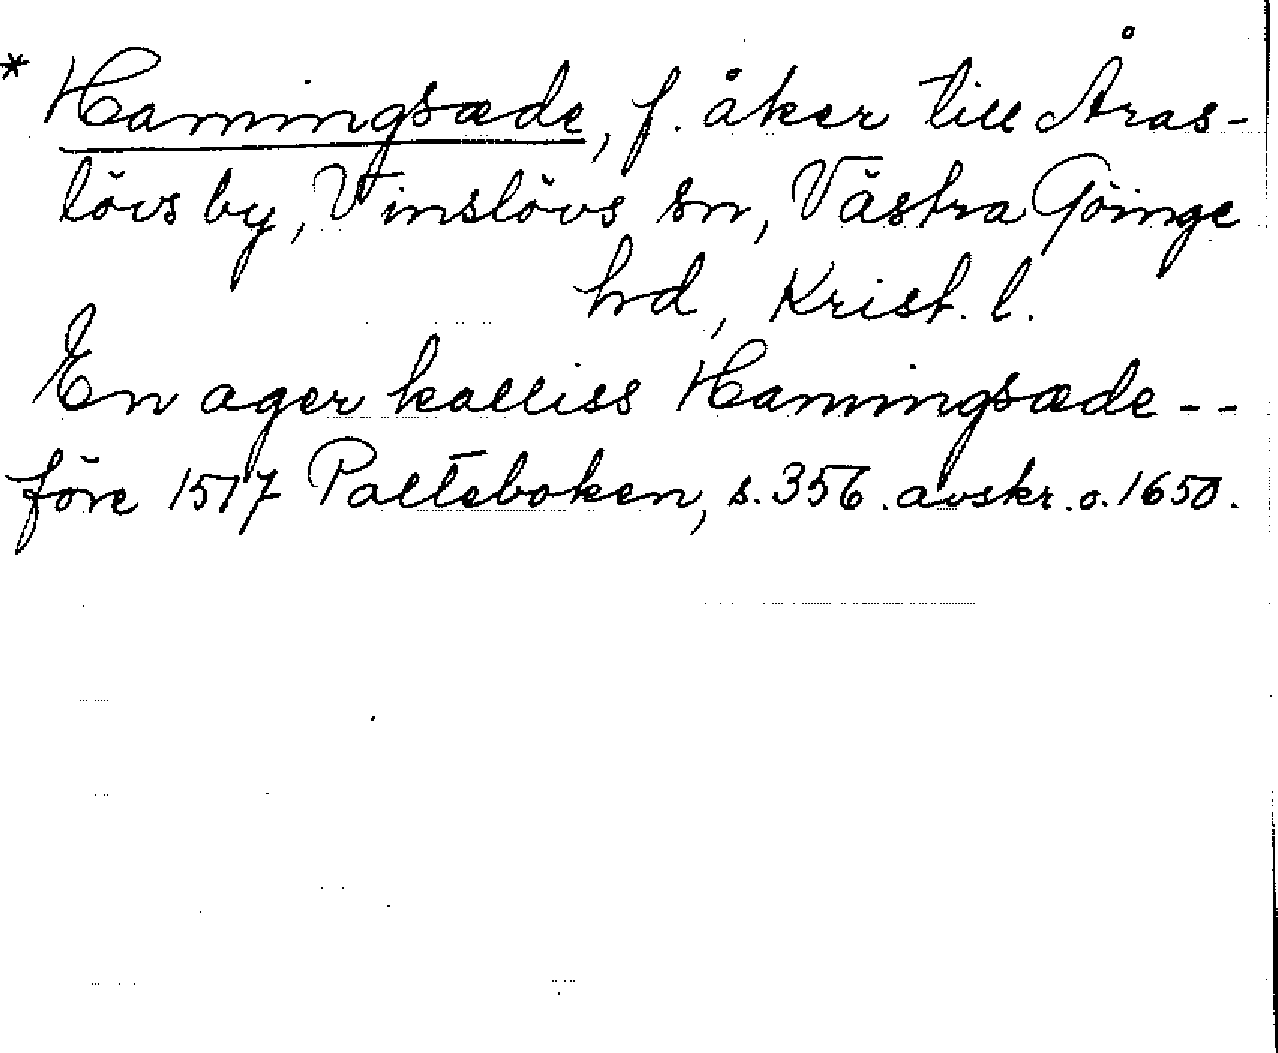 * Hamingsæde, f. åker till Åras-
lövs by, Vinslövs sn, Västra Göinge
hd, Krist. l.
En ager kalliss Hamingsæde --
före 1517 Palteboken, s. 356. avskr. o. 1650.